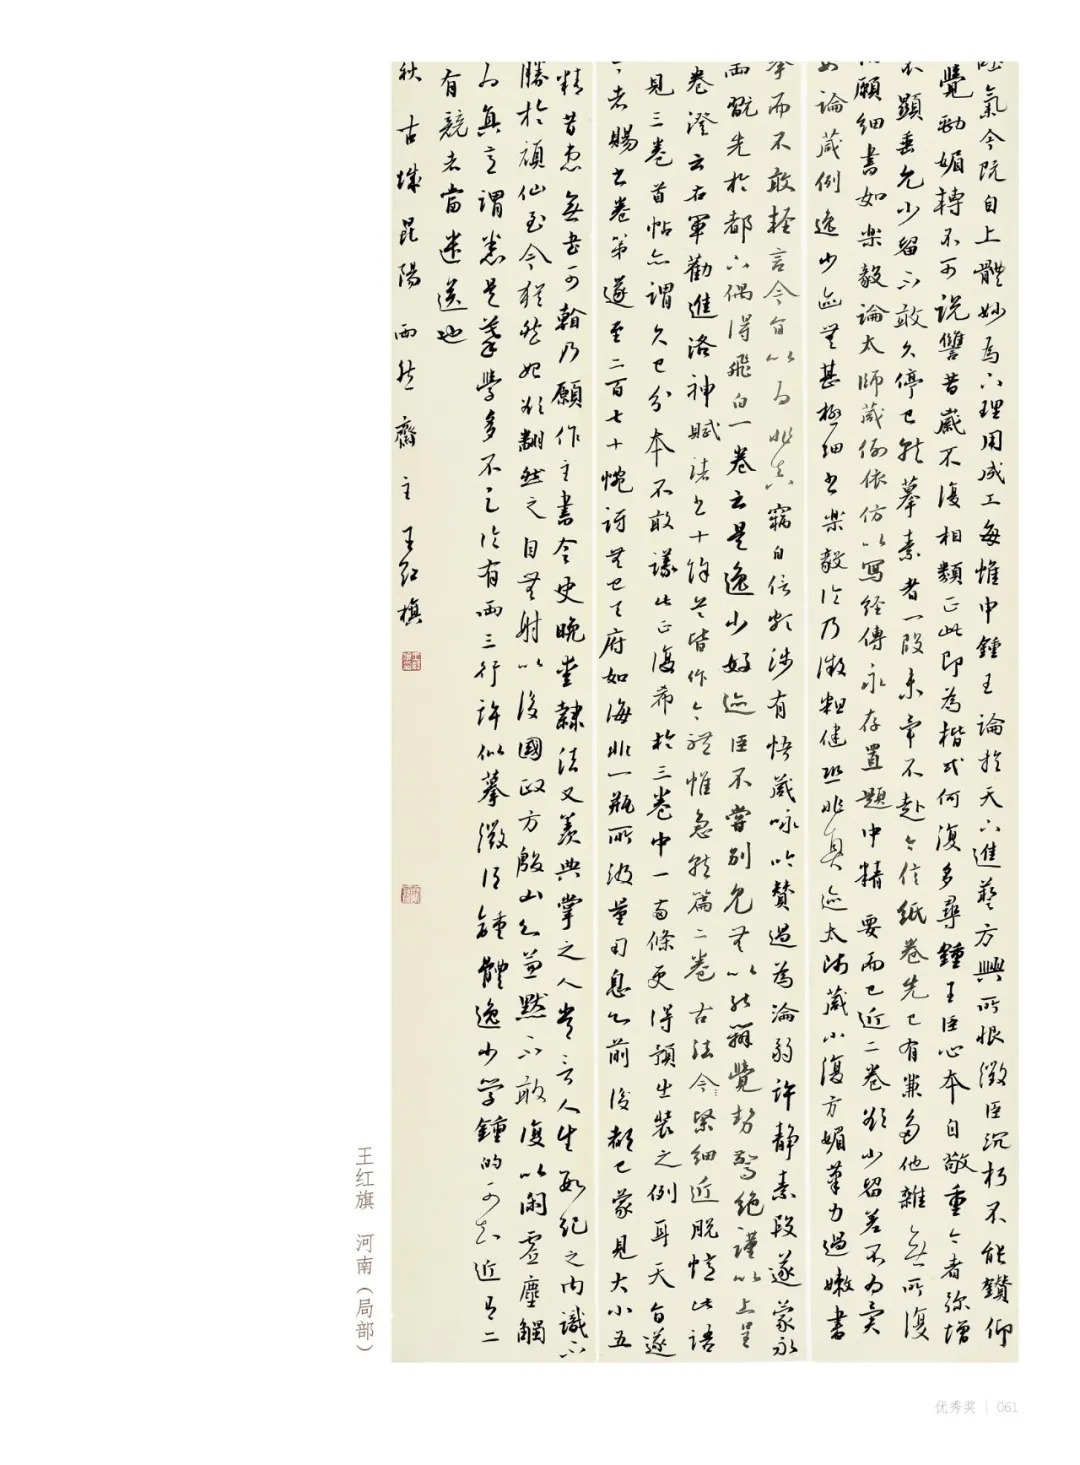 氣今既自上體妙為下理用成工每惟申鍾王論於天下進藝方興所恨微臣沉朽不能鑽仰
覺勁媚轉不可說讐昔歲不復相類正此即為楷式何復多尋鍾王臣心本自敬重今者弥增
顯垂允少留不敢久停已就摹素者一段未畢不赴今信紙卷先已有兼多他雜無所復
願細書如樂毅論太師葴例依仿以寫經傳永存置題中精要而已近二卷欲少留差不為異
論葴例逸少迹無甚極細書樂毅論乃微粗健恐非真迹太師葴小復方媚筆力過嫩書
而不敢輕言今旨以為非真竊自信頗涉有悟葴咏吟贊過為淪弱許静素段遂蒙永
雨翫先於都下偶得飛白一卷云是逸少好迹臣不嘗別見無以能辯覺勢驚絶謹以上呈
卷澄云右軍勸進洛神賦諸書十餘首皆作今體惟急就篇二卷古法今緊細近脫憶此語
見三卷首帖亦謂久已分本不敢議此正復希於三卷中一兩條更得預出裝之例耳天旨遂
者賜書卷第遂至二百七十惋訝無已天府如海非一瓶所汲量用息心前後都已蒙見大小五
精昔患無書可翰乃願作主書令史晚愛隸法又羨典掌之人常言人生數紀之內識不
勝於頑仙至今猶然始欲翻然之自無射以後國政方殷山心兼默不敢復以閑虛塵觸
為真意謂悉是摹學多不論有兩三行許似摹微得鍾體逸少学鍾的可知近有二
有競者當遞送也
秋 古城昆陽 雨然齋主 王紅旗
王红旗 河南（局部）
优秀奖 | 061